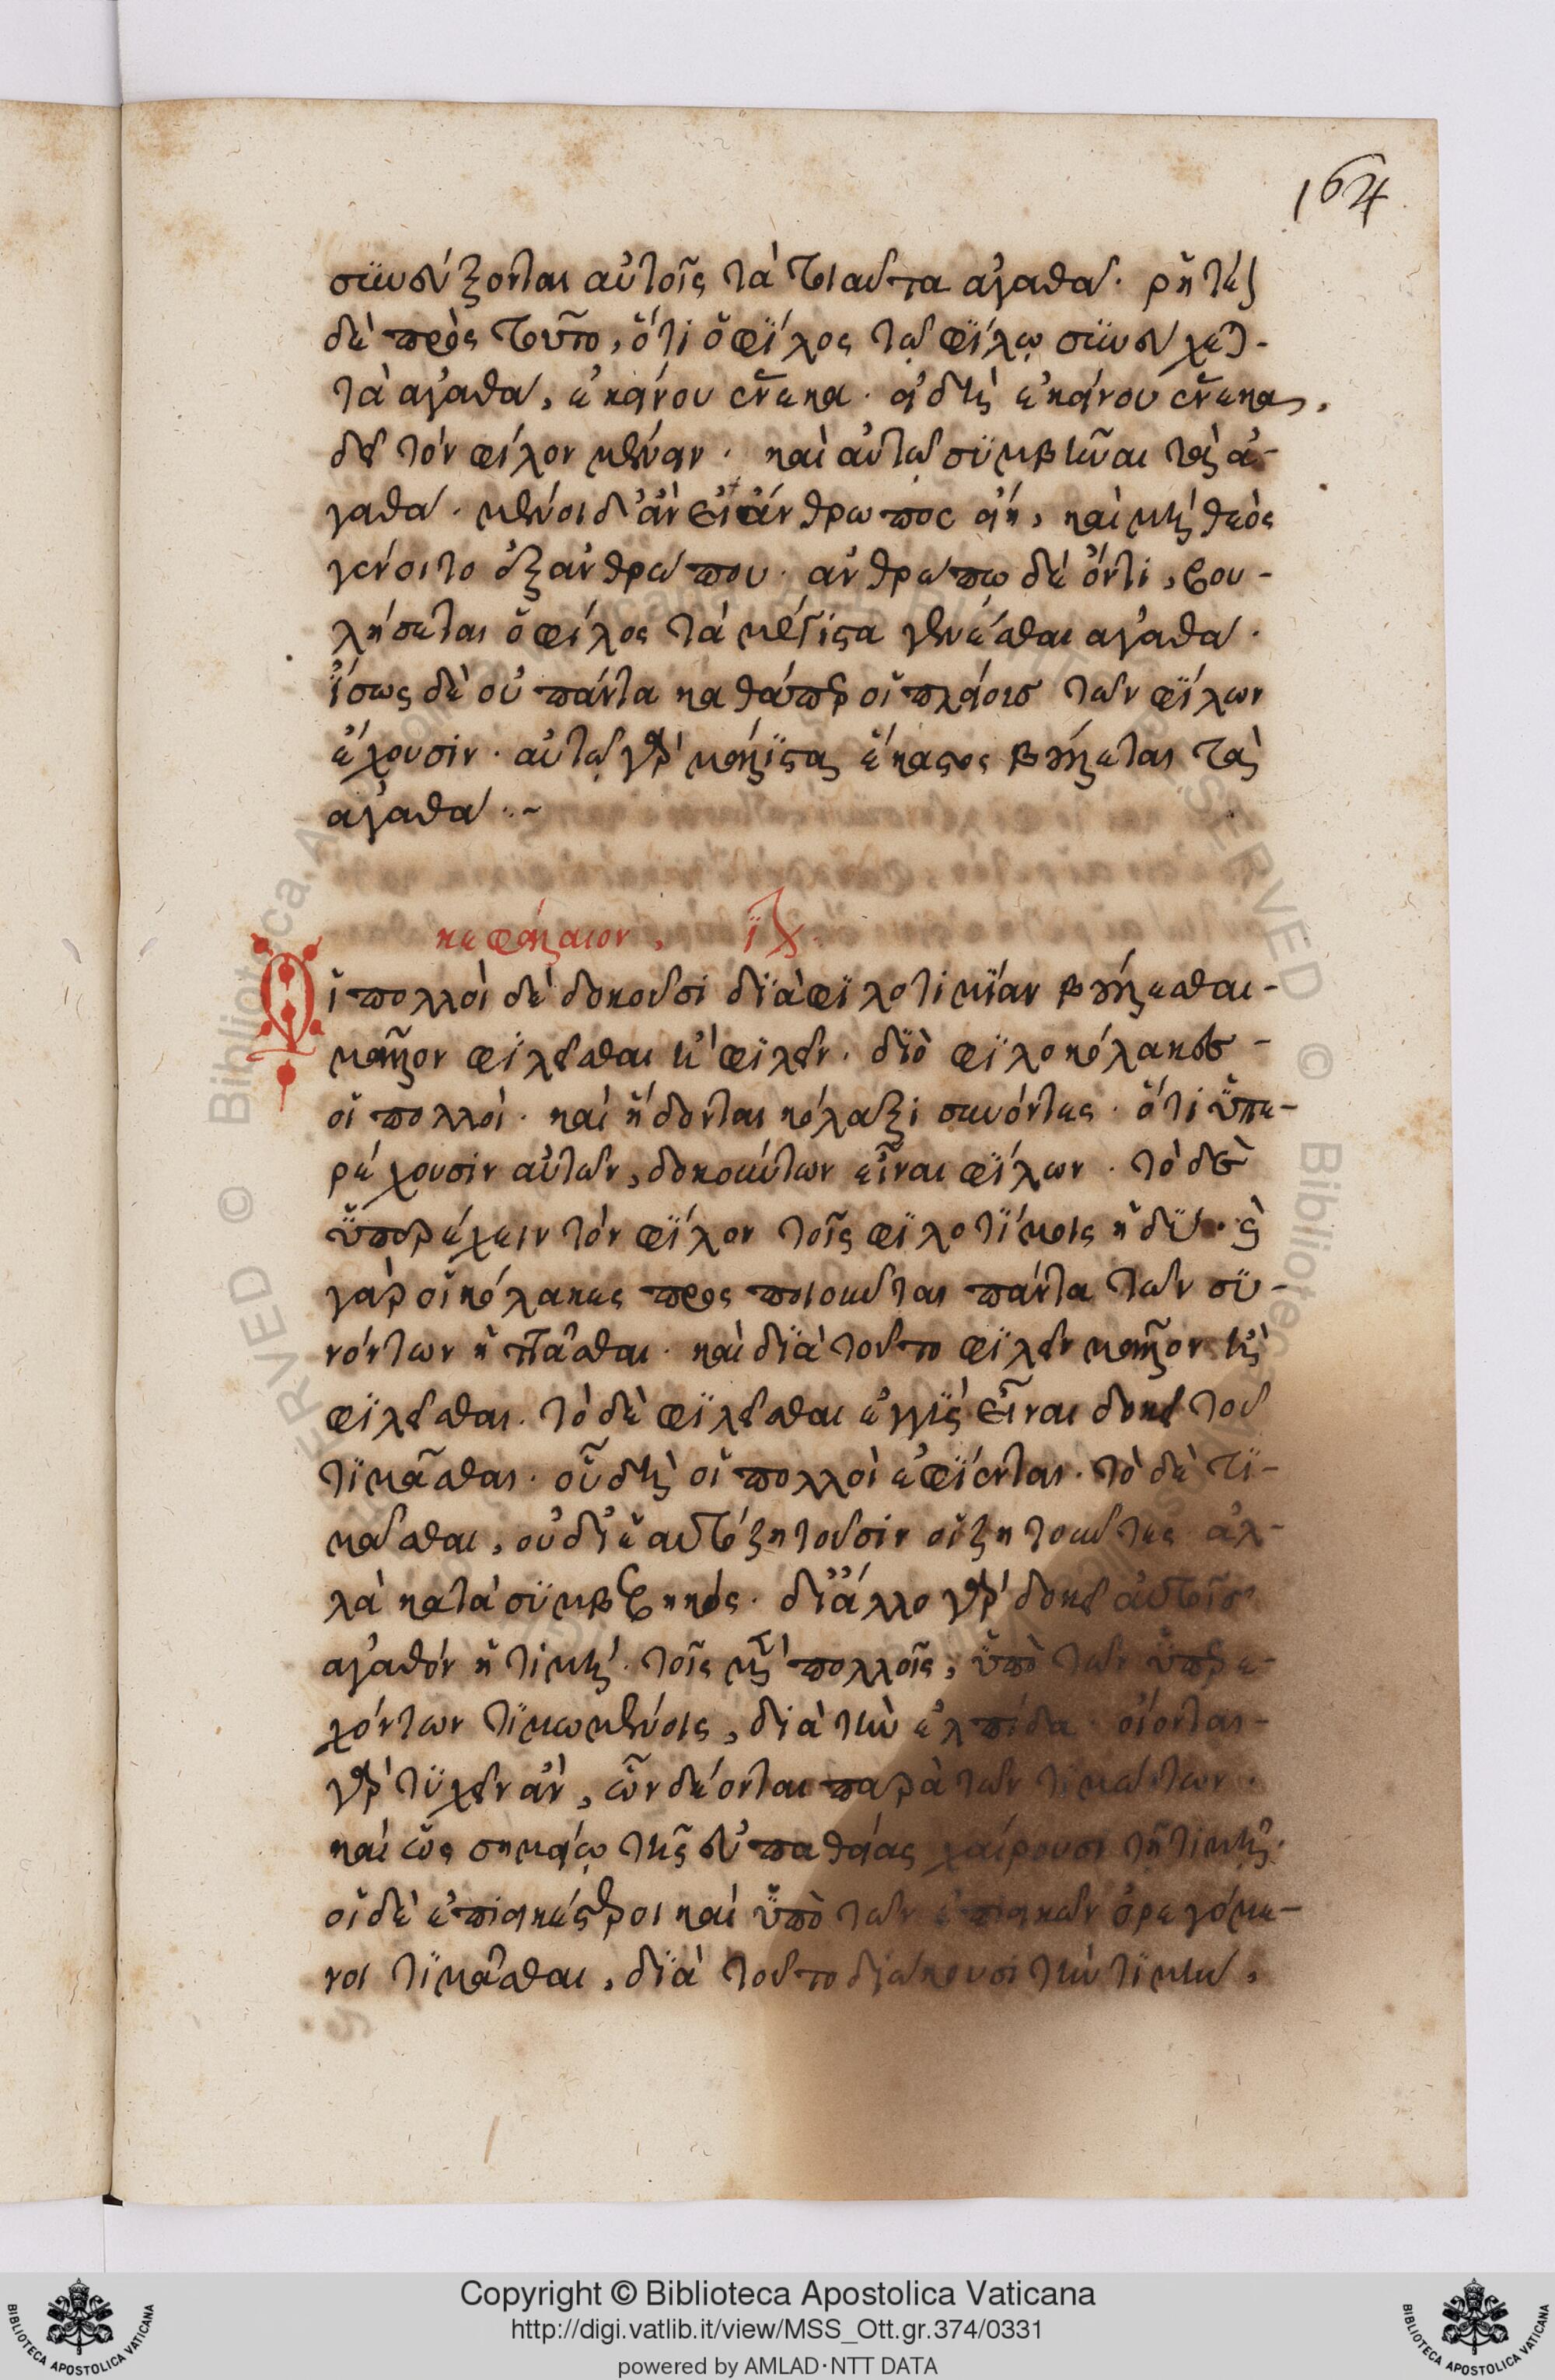 164
συνεύξονται αὐτοῖς τὰ τοιαῦτα ἀγαθά. ῥητέον
δὲ πρὸς τοῦτο, ὅτι ὁ φίλος τῷ φίλῳ συνεύχεται
τὰ ἀγαθά, ἐκείνου ἕνεκα. εἰ δὲ ἐκείνου ἕνεκα,
δεῖ τὸν φίλον μένειν. καὶ αὐτῷ συμβῆναι τὰ ἀ-
γαθά. μένοι δ' ἂν εἰ ἄνθρωπος εἴη, καὶ μὴ θεὸς
γένοιτο ἐξ ἀνθρώπου. ἀνθρώπῳ δὲ ὄντι, βου-
λήσεται ὁ φίλος τὰ μέγιστα γενέσθαι ἀγαθά.
ἴσως δὲ οὐ πάντα καθάπερ οἱ πλείους τῶν φίλων
ἔχουσιν. αὑτῷ γὰρ μάλιστα ἕκαστος βούλεται τὰ
ἀγαθά.
κεφάλαιον,
Οἱ πολλοὶ δὲ δοκοῦσι διὰ φιλοτιμίαν βούλεσθαι
μᾶλλον φιλεῖσθαι ἢ φιλεῖν. διὸ φιλοκόλακες
οἱ πολλοί. καὶ ἥδονται κόλαξι συνόντες. ὅτι ὑπε-
ρέχουσιν αὐτῶν, δοκούντων εἶναι φίλων. τὸ δὲ
ὑπερέχειν τὸν φίλον τοῖς φιλοτίμοις ἡδύ. καὶ
γὰρ οἱ κόλακες προσποιοῦνται πάντα τῶν συ-
νόντων ἡττᾶσθαι. καὶ διὰ τοῦτο φιλεῖν μᾶλλον ἢ
φιλεῖσθαι. τὸ δὲ φιλεῖσθαι ἐγγὺς εἶναι δοκεῖ τοῦ
τιμᾶσθαι. οὗ δὴ οἱ πολλοὶ ἐφίενται. τὸ δὲ τι-
μᾶσθαι, οὐ δι' ἑαυτὸ ζητοῦσιν οἱ ζητοῦντες ἀλ-
λὰ κατὰ συμβεβηκός. δι' ἄλλο γὰρ δοκεῖ αὐτοῖς
ἀγαθὸν ἡ τιμή. τοῖς μὲν πολλοῖς, ὑπὸ τῶν ὑπερε-
χόντων τιμωμένοις, διὰ τὴν ἐλπίδα. οἴονται
γὰρ τυχεῖν ἄν, ὧν δέονται παρὰ τῶν τιμώντων.
καὶ ὡς σημείῳ τῆς εὐπαθείας χαίρουσι τῇ τιμῇ.
οἱ δὲ ἐπιεικέστεροι καὶ ὑπὸ τῶν ἐπιεικῶν ὀρεγόμε-
νοι τιμᾶσθαι, διὰ τοῦτο διώκουσι τὴν τιμήν,
Copyright © Biblioteca Apostolica Vaticana
http://digi.vatlib.it/view/MSS_Ott.gr.374/0331
powered by AMLAD·NTT DATA